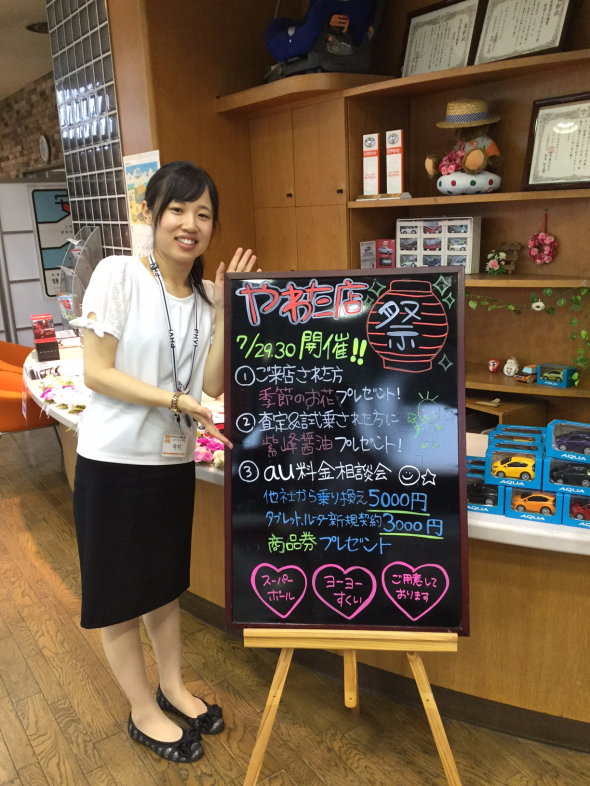 やわた店
祭
7/29.30 開催!!
① ご来店された方
季節のお花プレゼント!
② 査定&試乗された方に
紫峰醤油プレゼント!
③ au料金相談会
他社から乗り換え5000円
タブレット、ルター新規契約3000円
商品券プレゼント
スーパー
ボール
ヨーヨー
すくい
ご用意して
おります
AQUA
AQUA
AQUA